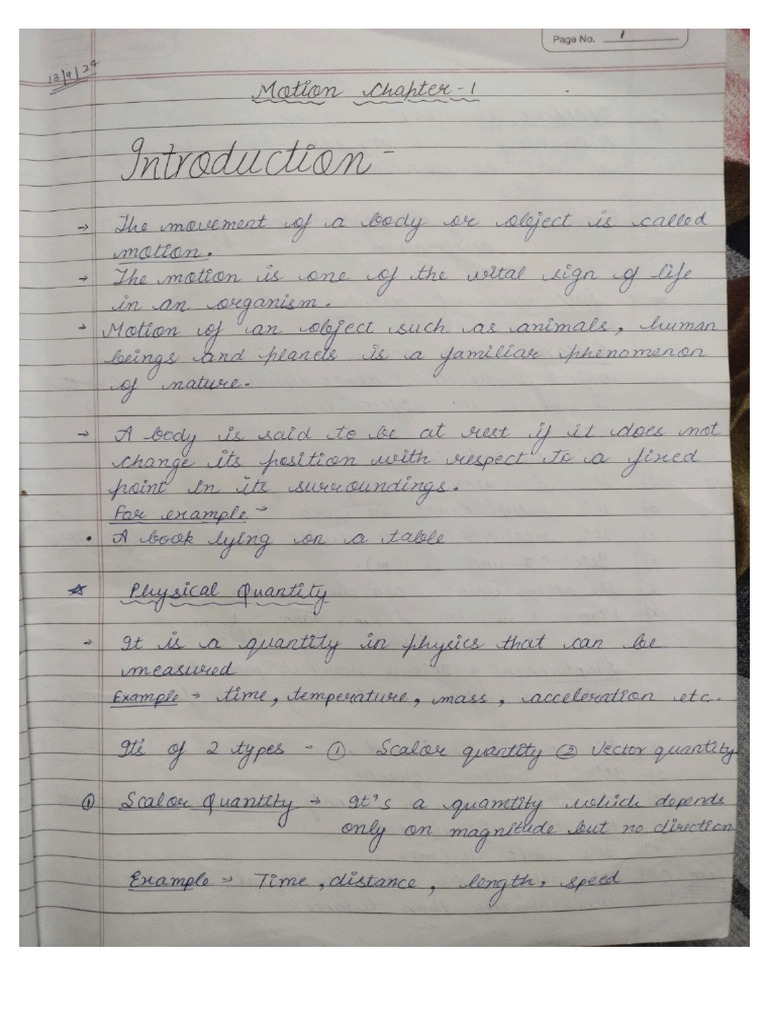 Page No. 1
13/9/24
Motion Chapter-1
Introduction-
→ The movement of a body or object is called
motion.
→ The motion is one of the vital sign of life
in an organism.
→ Motion of an object such as animals, human
beings and planets is a familiar phenomenon
of nature.
→ A body is said to be at rest if it does not
change its position with respect to a fixed
point in its surroundings.
For example-
• A book lying on a table
☆ Physical Quantity
→ It is a quantity in physics that can be
measured
Example → time, temperature, mass, acceleration etc.
Iti of 2 types - ① Scalor quantity ② Vector quantity
① Scalor Quantity → It's a quamtity which depends
only on magnitude but no direction
Example → Time, distance, length, speed